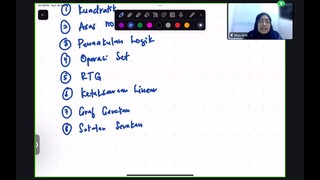 ① Kuadratik
② Asas no
③ Penaakulan Logik
④ Operasi Set
⑤ RTG
⑥ Ketaksamaan Linear
⑦ Graf Gerakan
⑧ Sukatan Serakan